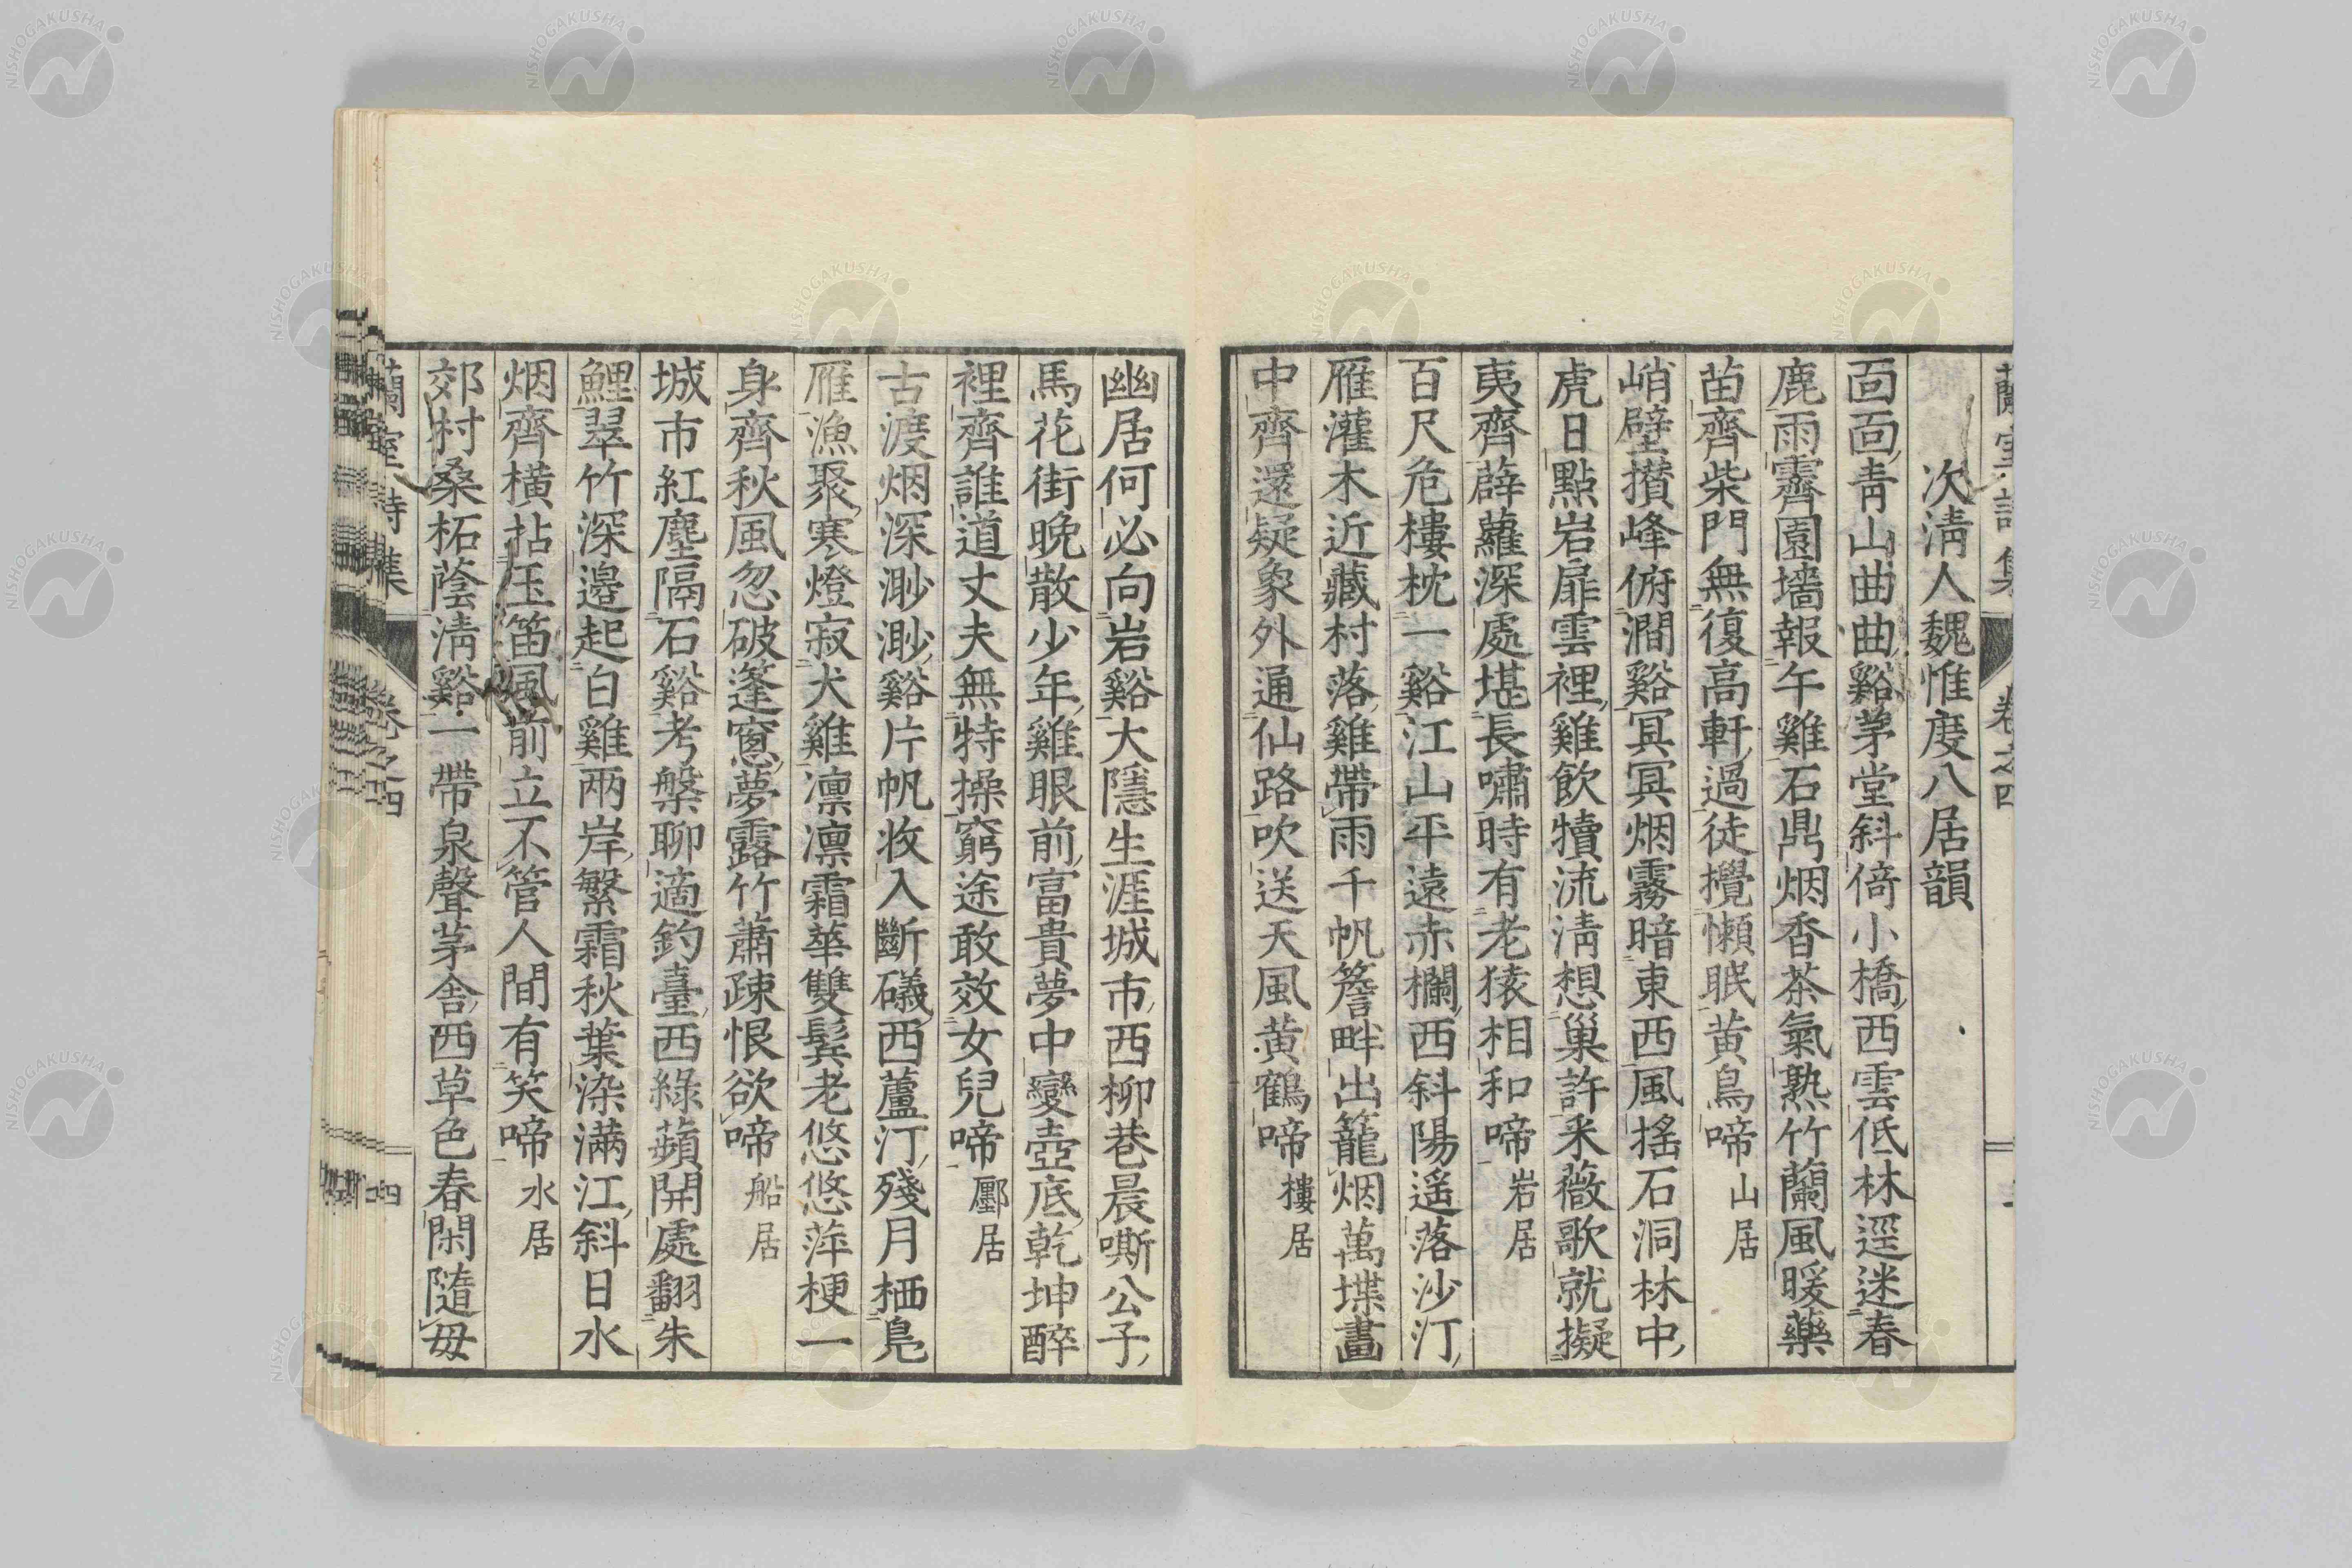 蘭室詩集 卷之四
次淸人魏惟度八居韻
面面靑山曲曲谿茅堂斜倚小橋西雲低林逕迷春
鹿雨霽園墻報午雞石鼎烟香茶氣熟竹蘭風暖藥
苗齊柴門無復高軒過徒攪懶眠黃鳥啼 山居
峭壁攅峰俯澗谿冥冥烟霧暗東西風搖石洞林中
虎日點岩扉雲裡雞飮犢流淸想巢許采薇歌就擬
夷齊薜蘿深處堪長嘯時有老猿相和啼 岩居
百尺危樓枕一谿江山平遠赤欄西斜陽遥落沙汀
雁灌木近藏村落雞帶雨千帆簷畔出籠烟萬堞畫
中齊還疑象外通仙路吹送天風黃鶴啼 樓居
幽居何必向岩谿大隱生涯城市西柳巷晨嘶公子
馬花街晩散少年雞眼前富貴夢中變壺底乾坤醉
裡齊誰道丈夫無特操窮途敢效女兒啼 鄽居
古渡烟深渺渺谿片帆收入斷礒西蘆汀殘月栖鳧
雁漁聚寒燈寂犬雞凛凛霜華雙鬂老悠悠萍梗一
身齊秋風忽破篷窻夢露竹蕭疎恨欲啼 船居
城市紅塵隔石谿考槃聊適釣臺西綠蘋開處翻朱
鯉翠竹深邊起白雞兩岸繁霜秋葉染滿江斜日水
烟齊橫拈玉笛風前立不管人間有笑啼 水居
郊村桑柘蔭淸谿一帶泉聲茅舍西草色春閑隨毋
蘭室詩集 卷之四 四
NISHOGAKUSHA